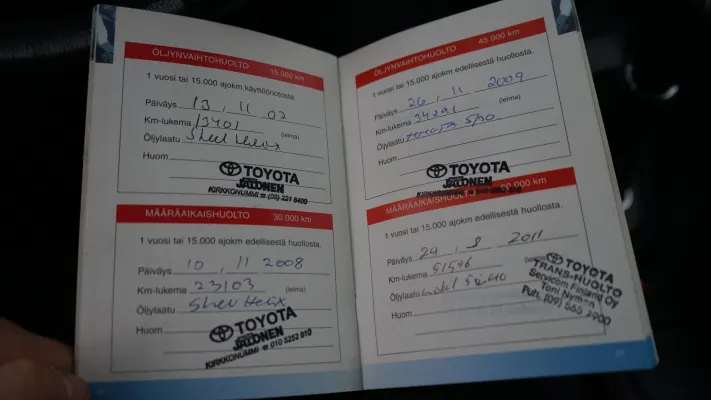 ÖLJYNVAIHTOHUOLTO 15.000 km
1 vuosi tai 15.000 ajokm käyttöönotosta.
Päiväys 13 . 11 07
Km-lukema 13401 (leima)
Öljylaatu Shell Helix
Huom
TOYOTA
JALONEN
KIRKKONUMMI ☎ (09) 221 8400
MÄÄRÄAIKAISHUOLTO 30.000 km
1 vuosi tai 15.000 ajokm edellisestä huollosta.
Päiväys 10 . 11 2008
Km-lukema 23103 (leima)
Öljylaatu Shell Helix
Huom
TOYOTA
JALONEN
KIRKKONUMMI ☎ 010 5252 810
ÖLJYNVAIHTOHUOLTO 45.000 km
1 vuosi tai 15.000 ajokm edellisestä huollosta.
Päiväys 26 . 11 2009
Km-lukema 34291 (leima)
Öljylaatu
Huom
TOYOTA
JALONEN
KIRKKONUMMI
MÄÄRÄAIKAISHUOLTO 60.000 km
1 vuosi tai 15.000 ajokm edellisestä huollosta.
Päiväys 24 . 8 2011
Km-lukema 51546 (leima)
Öljylaatu
Huom
TOYOTA
TRANS-HUOLTO
Servicom Finland Oy
Toni Nyman
Puh. (09) 565 3900